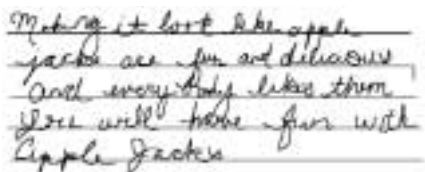 Making it look like apple
jacks are fun and delicious
and everybody likes them
you will have fun with
Apple Jacks